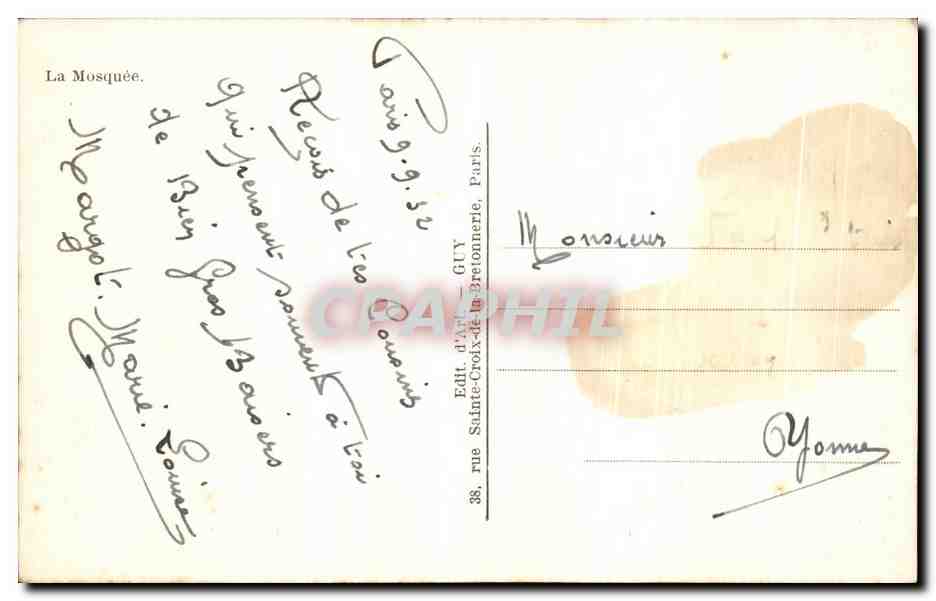 La Mosquée.
Paris 9.9.32
Recois de tes Cousins
qui pensent souvent à toi
de Bien Gros Baisers
Margot. Marie. Louise
Edit. d'Art — GUY
38, rue Sainte-Croix-de-la-Bretonnerie, Paris.
Monsieur
Yonne
CPAPHIL